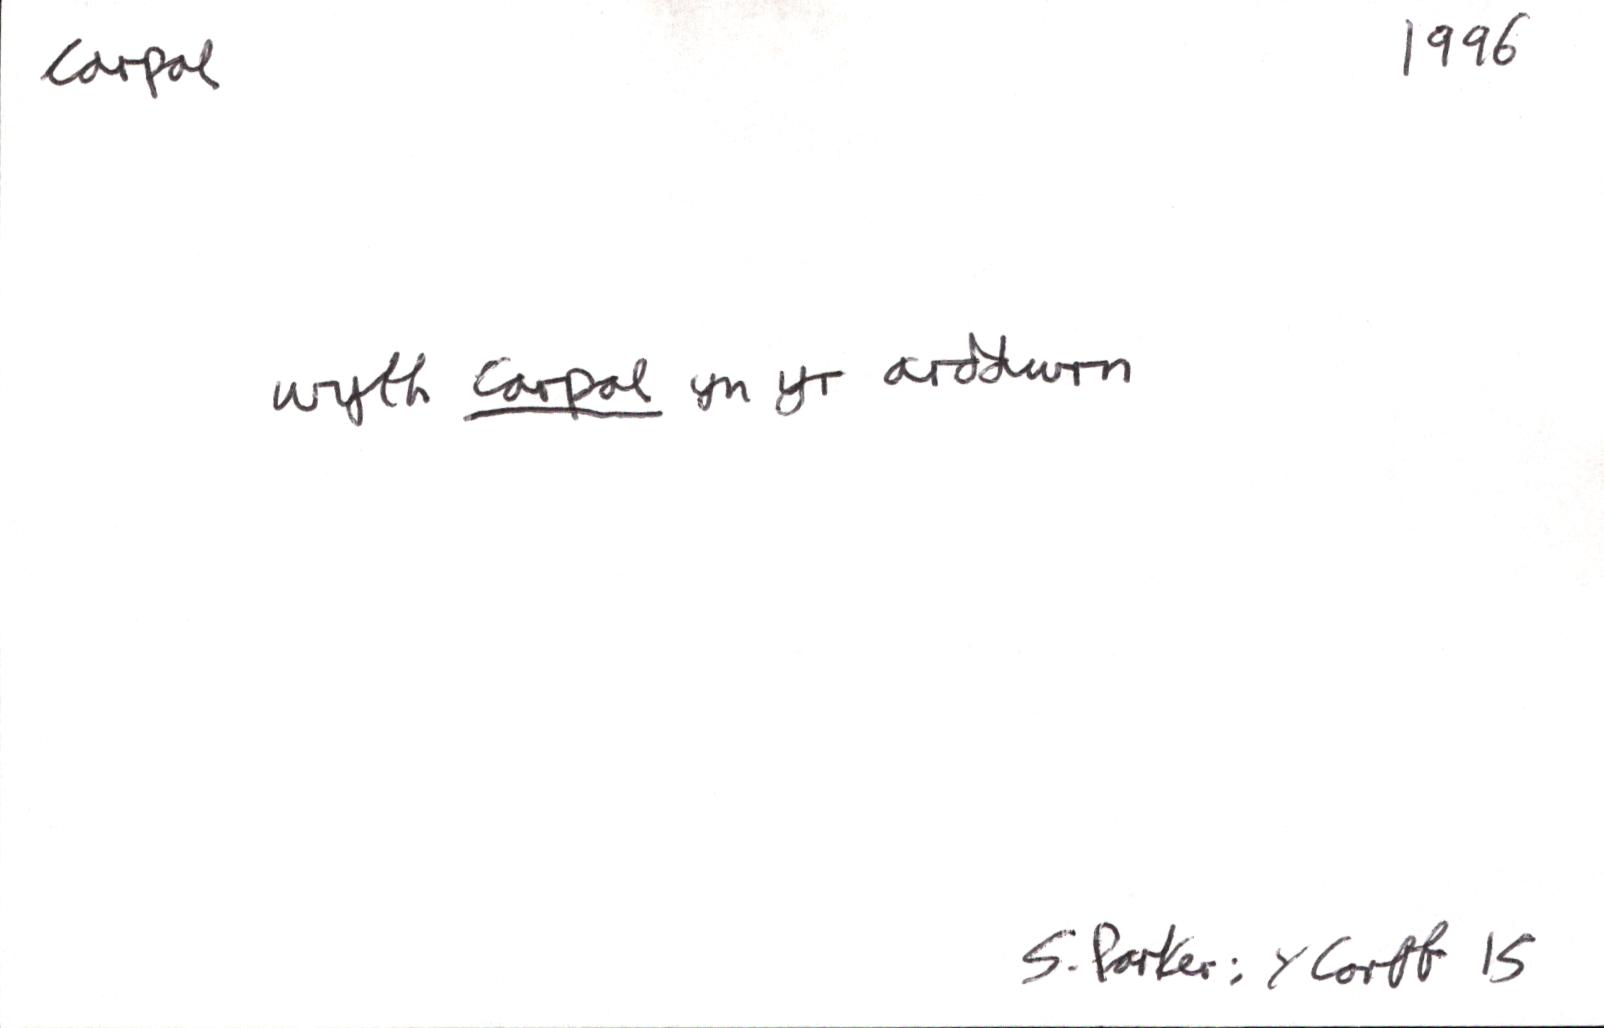 carpal 1996
wyth carpal yn yr arddwrn
S. Parker: Y Corff 15